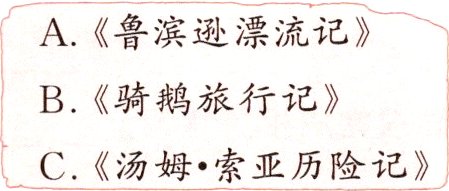 A.《鲁滨逊漂流记》
B.《骑鹅旅行记》
C.《汤姆•索亚历险记》